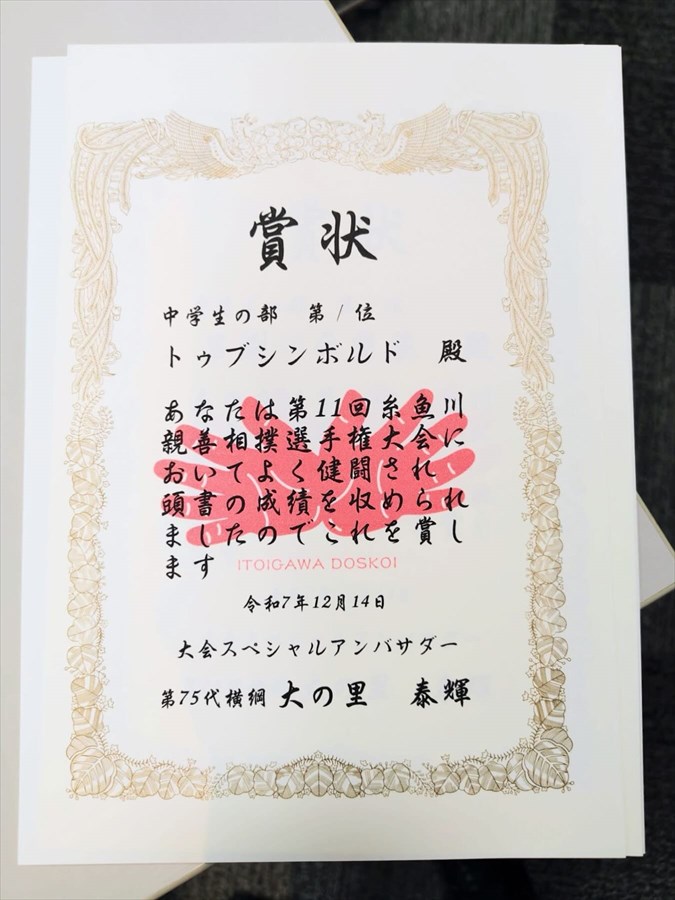 賞状
中学生の部　第1位
トゥブシンボルド　殿
あなたは第11回糸魚川
親善相撲選手権大会に
おいてよく健闘され
頭書の成績を収められ
ましたのでこれを賞し
ます
ITOIGAWA DOSKOI
令和7年12月14日
大会スペシャルアンバサダー
第75代横綱 大の里　泰輝